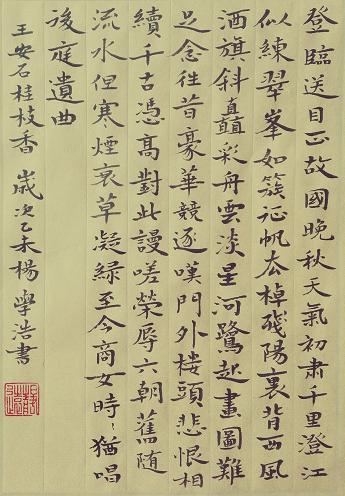 登臨送目正故國晚秋天氣初肅千里澄江
似練翠峯如簇征帆去棹殘陽裏背西風
酒旗斜矗彩舟雲淡星河鷺起畫圖難
足念往昔豪華競逐嘆門外楼頭悲恨相
續千古憑高對此謾嗟榮辱六朝舊随
流水但寒煙衰草凝綠至今商女時〻猶唱
後庭遺曲
王安石桂枝香 歲次乙未楊學浩書